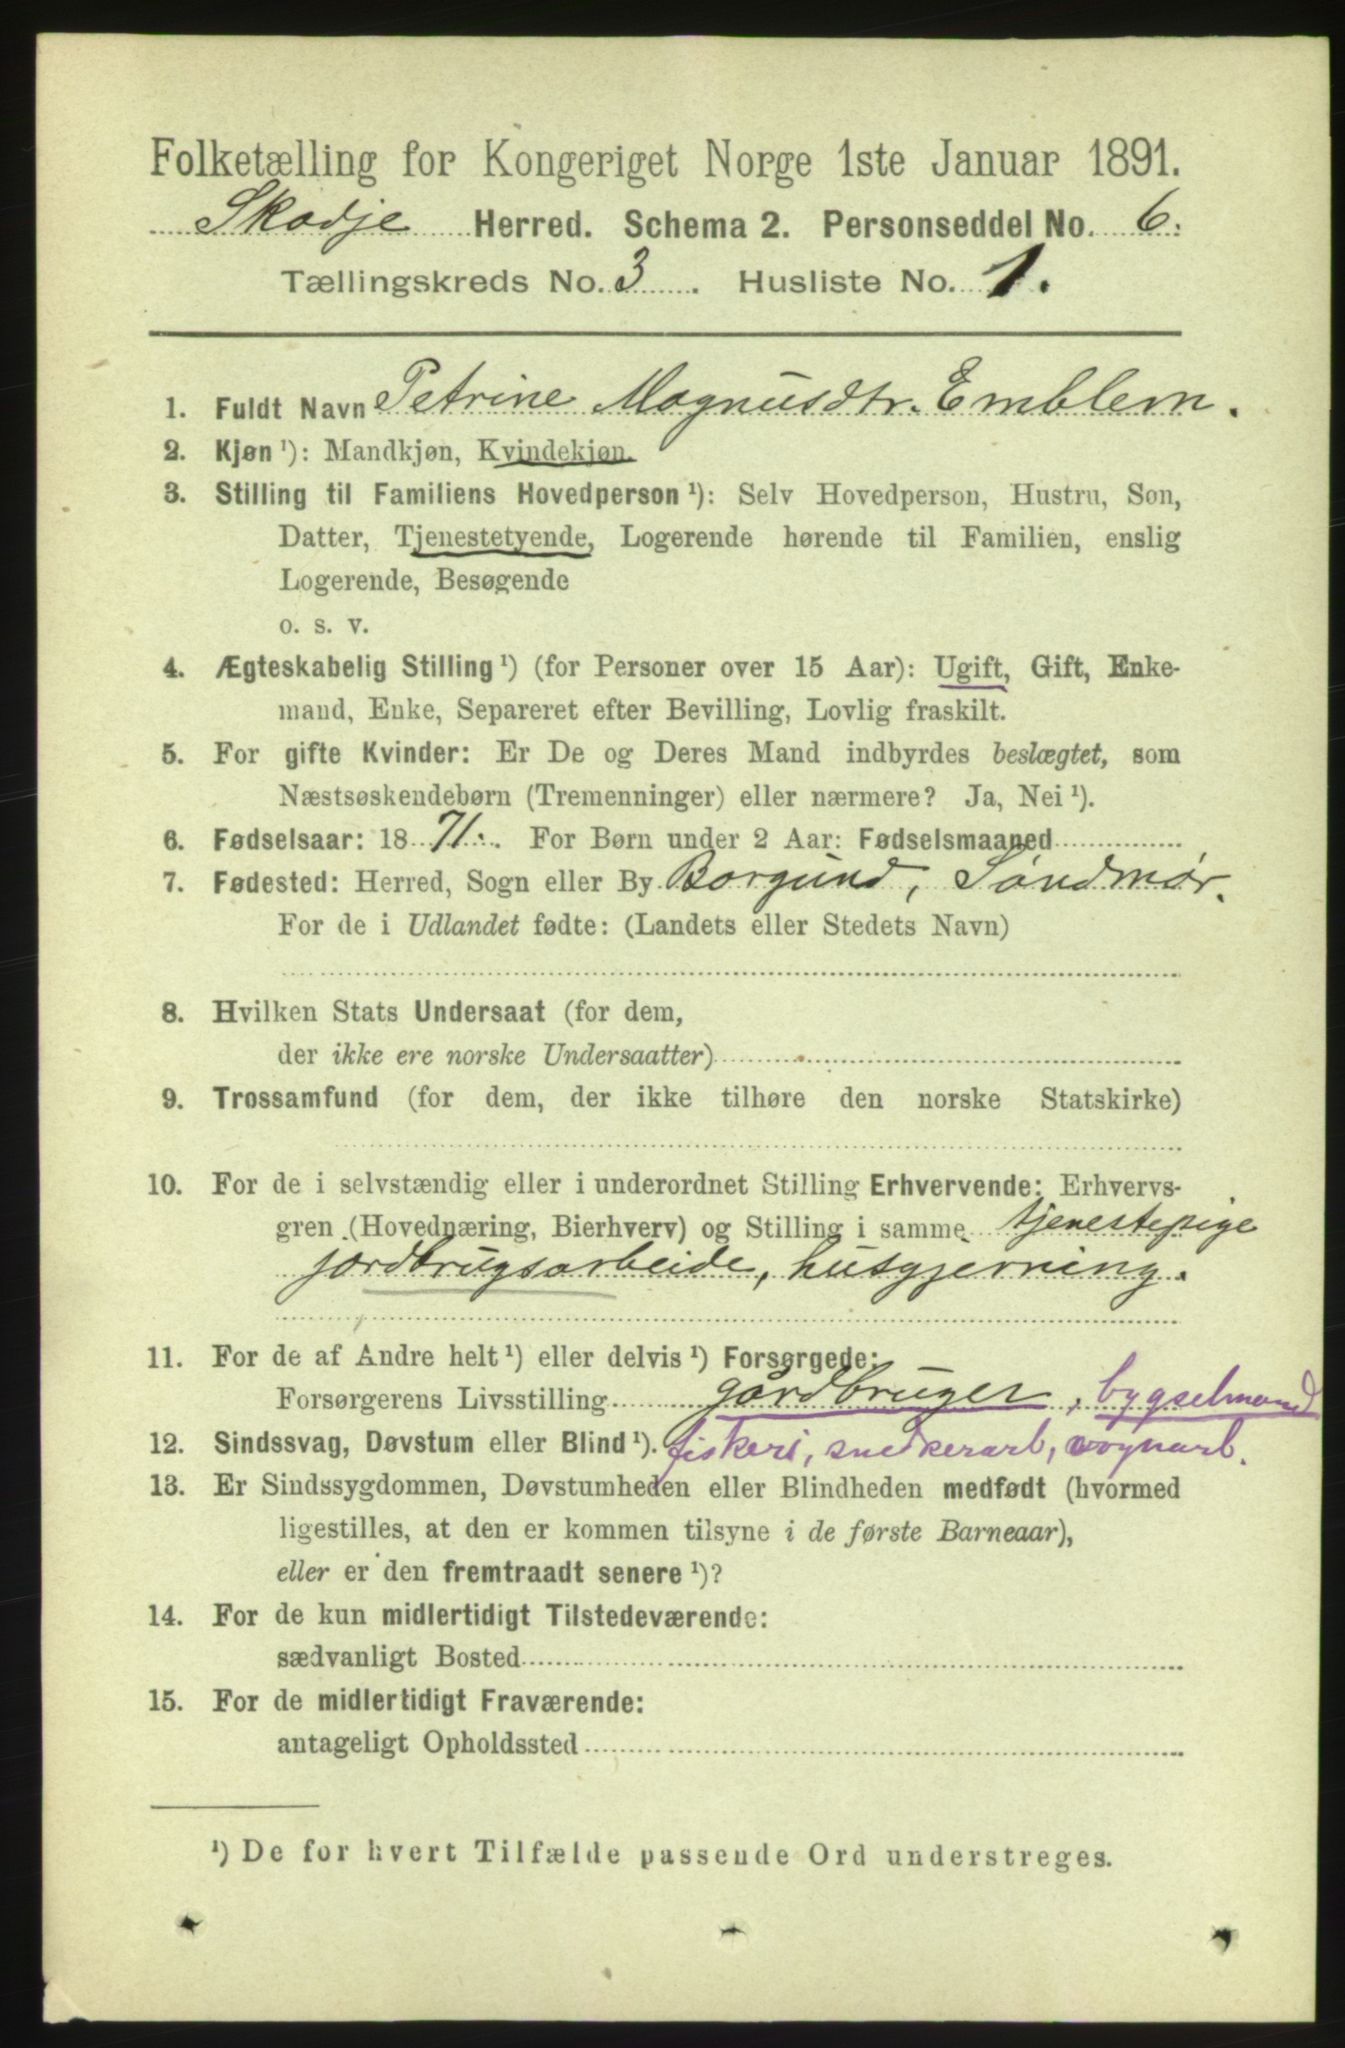 Folketælling for Kongeriget Norge 1ste Januar 1891.
Skodje Herred. Schema 2. Personseddel No. 6.
Tællingskreds No. 3. Husliste No. 1.
1. Fuldt Navn Petrine Magnusdtr. Emblem.
2. Kjøn ¹): Mandkjøn, Kvindekjøn.
3. Stilling til Familiens Hovedperson ¹): Selv Hovedperson, Hustru, Søn,
Datter, Tjenestetyende, Logerende hørende til Familien, enslig
Logerende, Besøgende
o. s. v.
4. Ægteskabelig Stilling ¹) (for Personer over 15 Aar): Ugift, Gift, Enke-
mand, Enke, Separeret efter Bevilling, Lovlig fraskilt.
5. For gifte Kvinder: Er De og Deres Mand indbyrdes beslægtet, som
Næstsøskendebørn (Tremenninger) eller nærmere? Ja, Nei ¹).
6. Fødselsaar: 1871. For Børn under 2 Aar: Fødselsmaaned
7. Fødested: Herred, Sogn eller By Borgund, Søndmør.
For de i Udlandet fødte: (Landets eller Stedets Navn)
8. Hvilken Stats Undersaat (for dem,
der ikke ere norske Undersaatter)
9. Trossamfund (for dem, der ikke tilhøre den norske Statskirke)
10. For de i selvstændig eller i underordnet Stilling Erhvervende: Erhvervs-
gren (Hovednæring, Bierhverv) og Stilling i samme tjenestepige
jordbrugsarbeide, husgjerning.
11. For de af Andre helt ¹) eller delvis ¹) Forsørgede:
Forsørgerens Livsstilling gårdbruger, bygselmand
12. Sindssvag, Døvstum eller Blind ¹). fiskeri, snedkerarb, vognarb.
13. Er Sindssygdommen, Døvstumheden eller Blindheden medfødt (hvormed
ligestilles, at den er kommen tilsyne i de første Barneaar),
eller er den fremtraadt senere ¹)?
14. For de kun midlertidigt Tilstedeværende:
sædvanligt Bosted
15. For de midlertidigt Fraværende:
antageligt Opholdssted
¹) De for hvert Tilfælde passende Ord understreges.